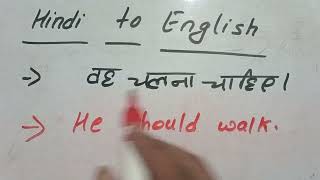 Hindi to English
-> वह चलना चाहिए।
-> He should walk.